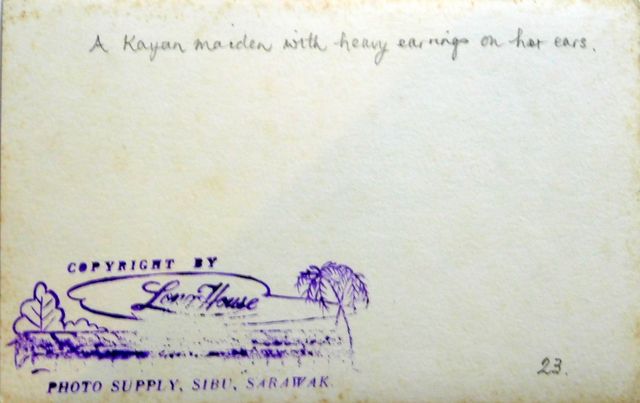 A Kayan maiden with heavy earrings on her ears.
COPYRIGHT BY
Long House
PHOTO SUPPLY, SIBU, SARAWAK.
23.